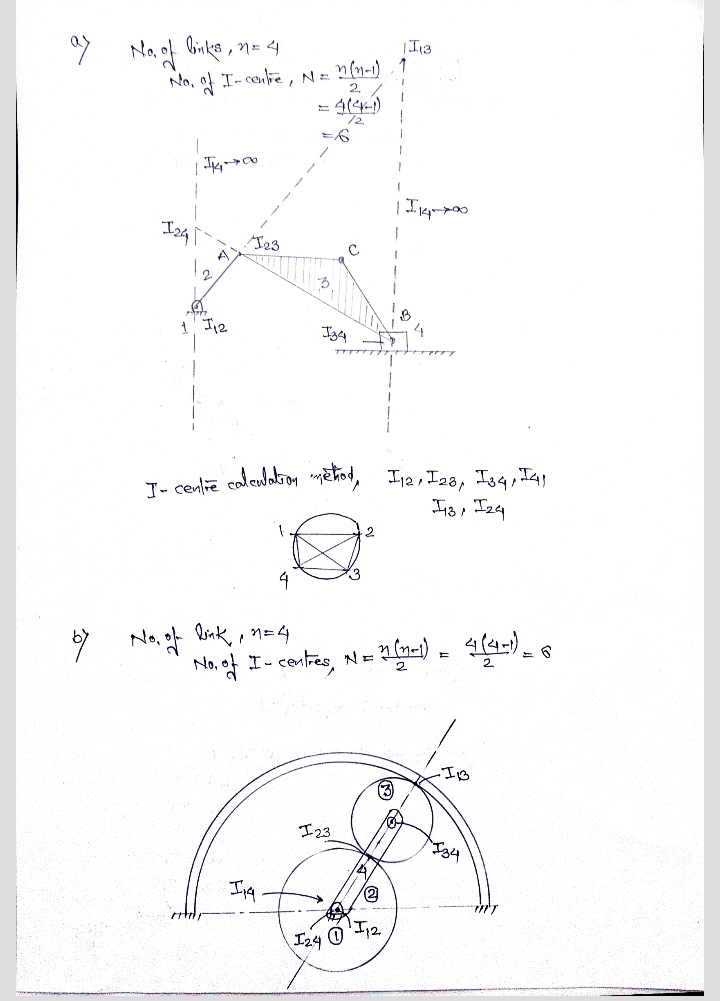 a) No. of links, n = 4
No. of I-centre, N = n(n-1)/2
= 4(4-1)/2
= 6
I13
I14→∞
I14→∞
I24
A
I23
C
2
3
B
4
1
I12
I34
I-centre calculation method, I12, I23, I34, I41
I13, I24
1
2
4
3
b) No. of link, n = 4
No. of I-centres, N = n(n-1)/2 = 4(4-1)/2 = 6
I13
③
I23
I34
4
I14
②
I24
①
I12